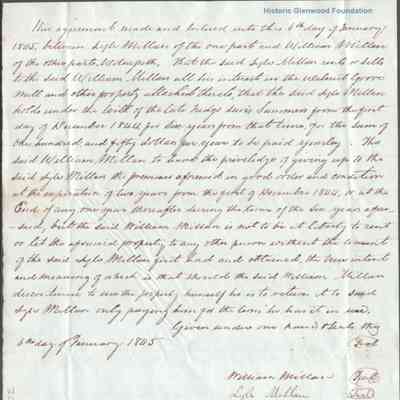 Historic Glenwood Foundation
This agreement made and entered into this 6th day of January
1845, between Lyle Millan of the one part and William Millan
of the other part, Witnesseth, That the said Lyle Millan rents or letts
to the said William Millan all his interest in the Walnut Grove
Mill and other property attached thereto, that the said Lyle Millan
holds under the Will of the late Judge Lewis Summers from the first
day of December 1844 for six years from that time, for the sum of
One hundred and fifty dollars per year to be paid yearly. The
said William Millan to have the priviledge of giving up to the
said Lyle Millan the premises aforesaid in good order and condition
at the expiration of two years from the first of December 1844, or at the
End of any one year thereafter during the term of the six years afore-
said, but the said William Millan is not to be at liberty to rent
or let the aforesaid property to any other person without the consent
of the said Lyle Millan first had and obtained, the true intent
and meaning of which is that should the said William Millan
discontinue to use the property himself he is to return it to said
Lyle Millan only paying him for the time he has it in use.
Given under our hands & seals this
6th day of January 1845
Seal
William Millan Seal
Lyle Millan Seal